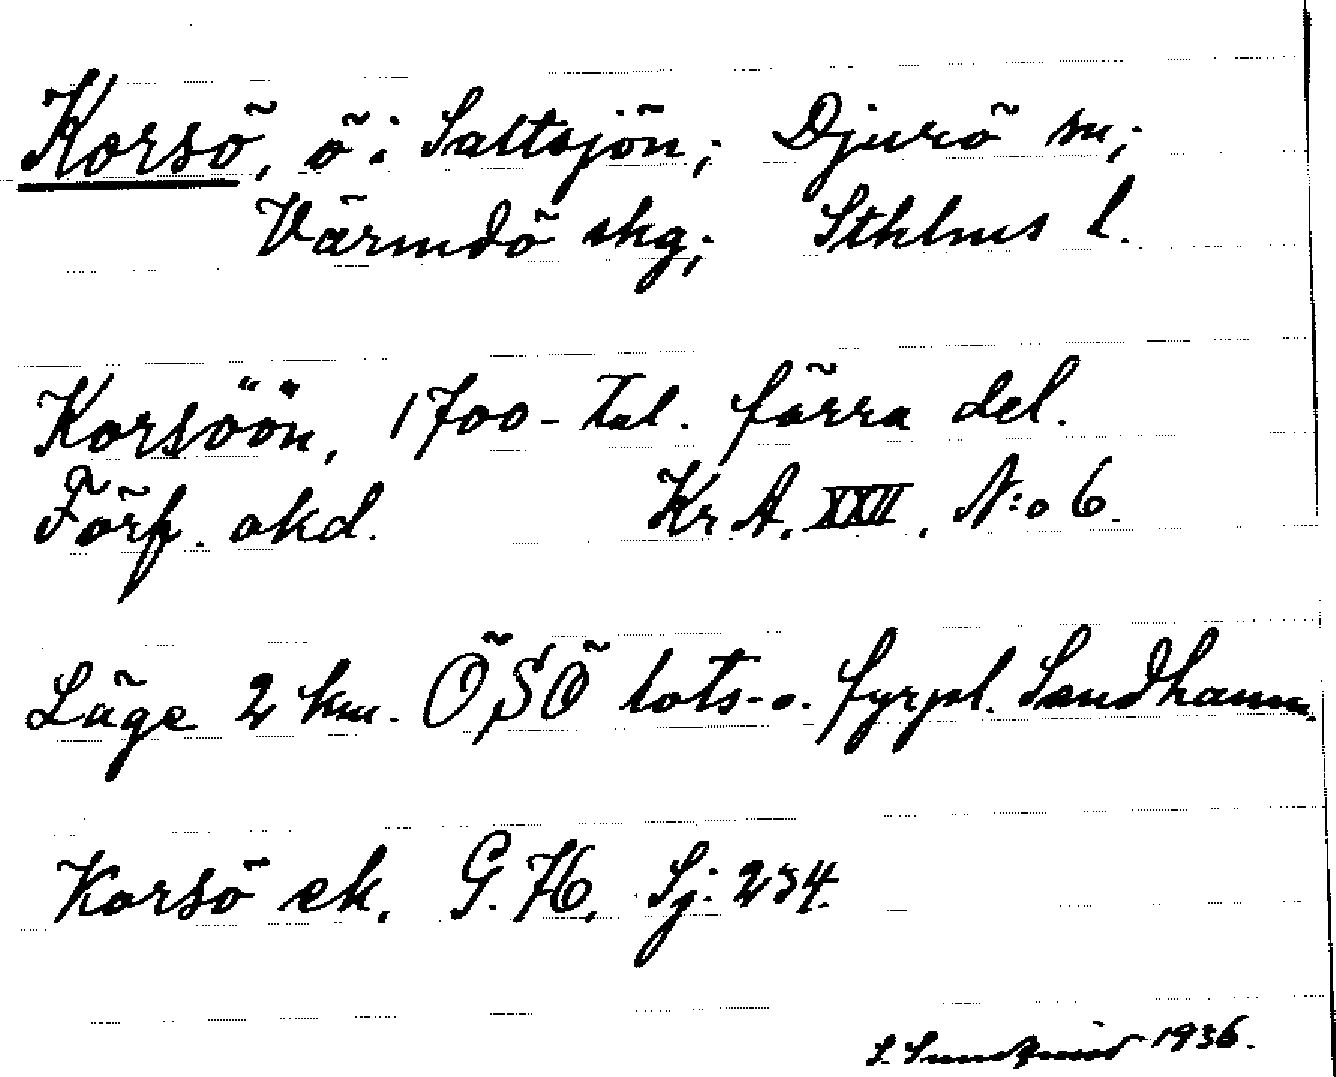 Korsö, ö i Saltsjön; Djurö sn;
Värmdö skg; Sthlms l.
Korsöön, 1700-tal. förra del.
Förf. okd. Kr A. XXII. N:o 6.
Läge 2 km. ÖSÖ lots- o. fyrpl. Sandhamn.
Korsö ek. G. 76. Sj: 234.
1936.